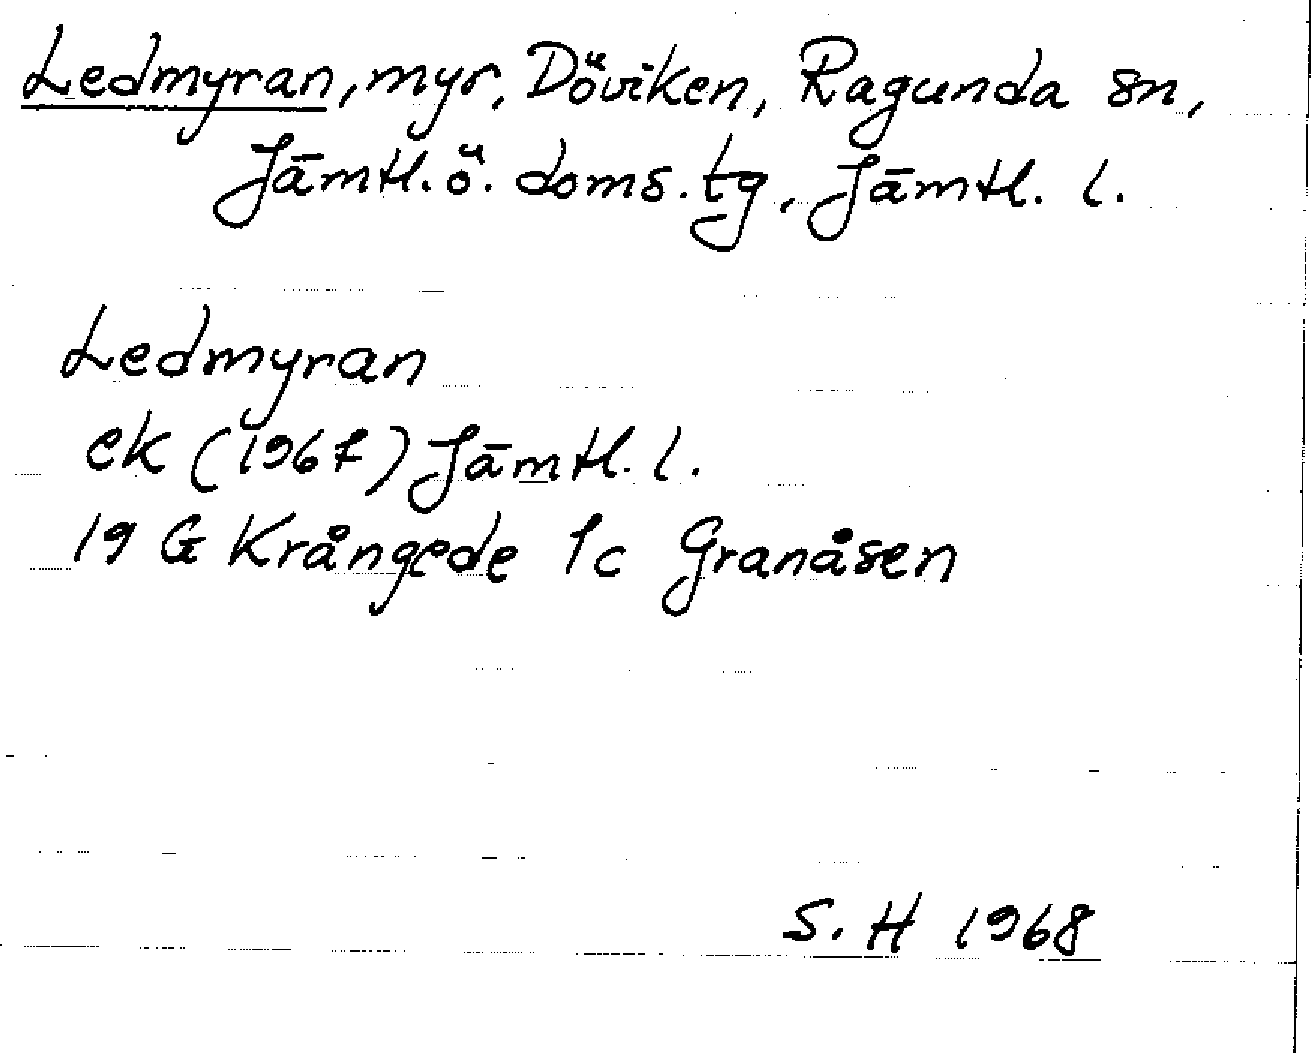 Ledmyran, myr, Döviken, Ragunda sn,
Jämtl. ö. doms. tg, Jämtl. l.
Ledmyran
ek (1967) Jämtl. l.
19 G Krångede 1c Granåsen
S. H 1968